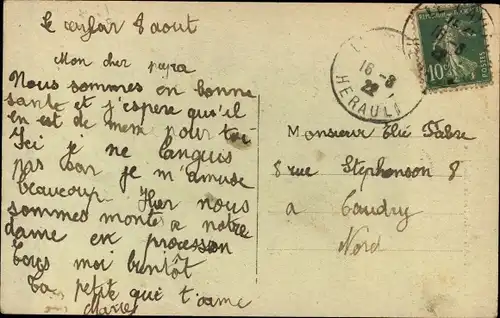 Le Caylar 8 aout
Mon cher papa
Nous sommes en bonne
sante et j'espere qu'il
en est de meme pour toi
Ici je ne languis
pas car je m'amuse
beaucoup. Hier nous
sommes montes a notre
dame en procession
bientôt
Ta petite qui t'aime
HERAULT
16-8
22
10c
POSTES
Monsieur Elie Fabre
8 rue Stephenson 8
a Caudry
Nord